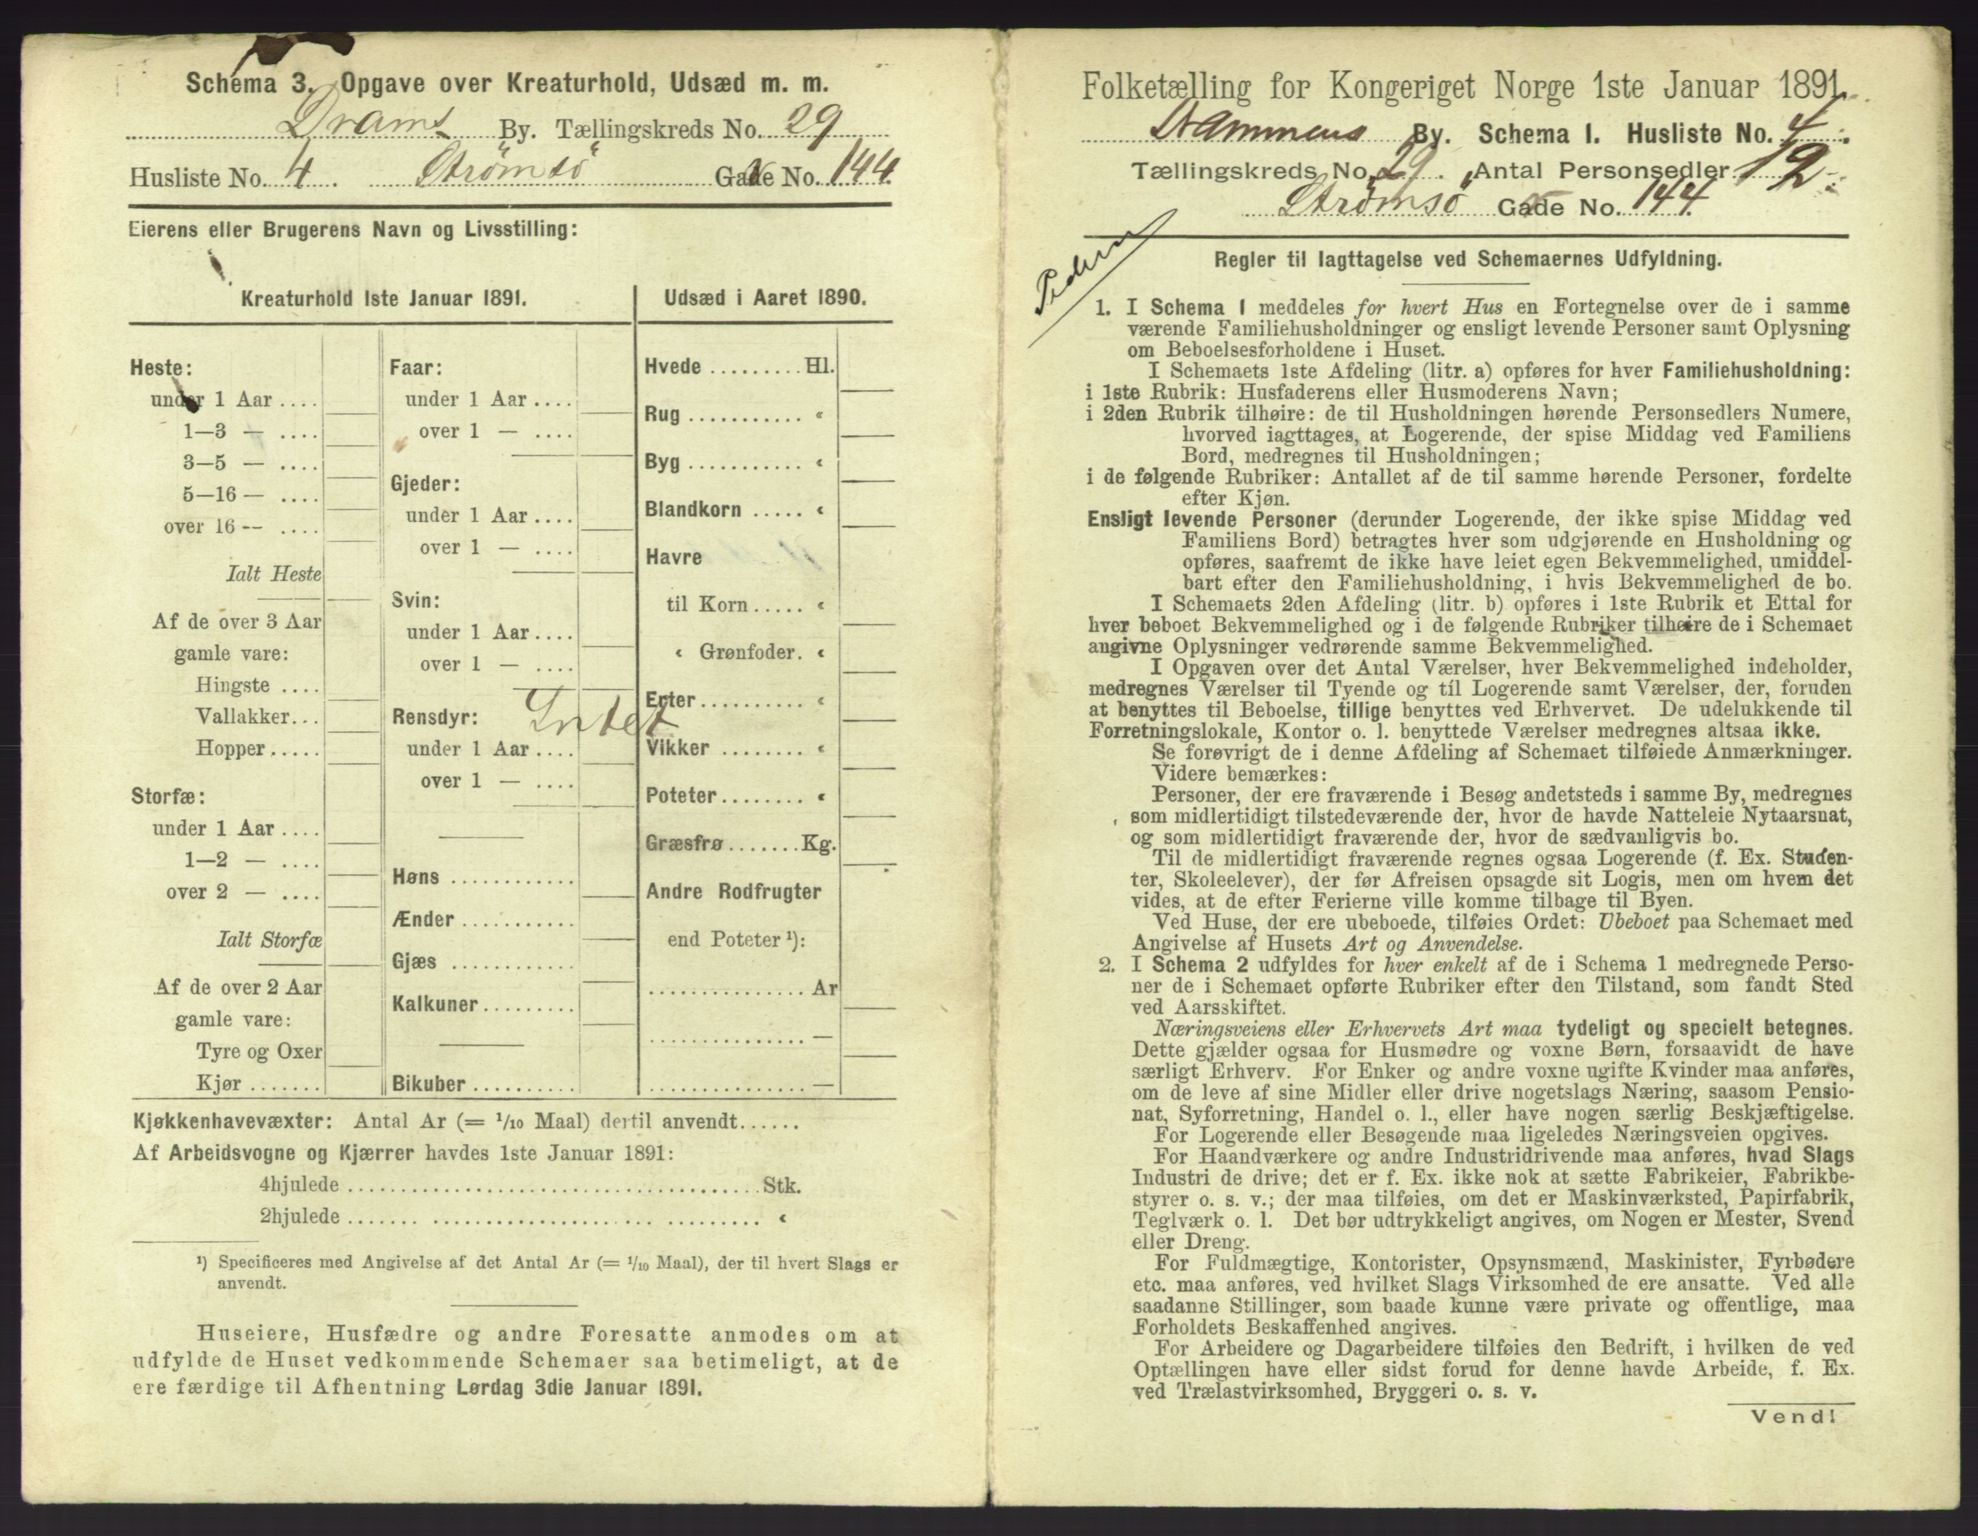 Schema 3. Opgave over Kreaturhold, Udsæd m. m.
Drams By. Tællingskreds No. 29
Husliste No. 4. Strömsö Gade No. 144.
Eierens eller Brugerens Navn og Livsstilling:
Kreaturhold 1ste Januar 1891.
Heste:
under 1 Aar ....
1—3 — ....
3—5 — ....
5—16 — ....
over 16 — ....
Ialt Heste
Af de over 3 Aar
gamle vare:
Hingste ....
Vallakker...
Hopper.....
Storfæ:
under 1 Aar ....
1—2 — ....
over 2 — ....
Ialt Storfæ
Af de over 2 Aar
gamle vare:
Tyre og Oxer
Kjør .......
Faar:
under 1 Aar ....
over 1 — ....
Gjeder:
under 1 Aar ....
over 1 — ....
Svin:
under 1 Aar ....
over 1 — ....
Rensdyr: Intet
under 1 Aar ....
over 1 — ....
Høns ............
Ænder ...........
Gjæs ............
Kalkuner.........
Bikuber ..........
Udsæd i Aaret 1890.
Hvede ......... Hl.
Rug ............ «
Byg ............ «
Blandkorn ..... «
Havre
til Korn ..... «
« Grønfoder. «
Erter........... «
Vikker ........ «
Poteter........ «
Græsfrø....... Kg.
Andre Rodfrugter
end Poteter ¹):
................ Ar
................ —
................ —
Kjøkkenhavevæxter: Antal Ar (= 1/10 Maal) dertil anvendt......
Af Arbeidsvogne og Kjærrer havdes 1ste Januar 1891:
4hjulede ........................................ Stk.
2hjulede ........................................ «
¹) Specificeres med Angivelse af det Antal Ar (= 1/10 Maal), der til hvert Slags er
anvendt.
Huseiere, Husfædre og andre Foresatte anmodes om at
udfylde de Huset vedkommende Schemaer saa betimeligt, at de
ere færdige til Afhentning Lørdag 3die Januar 1891.
Folketælling for Kongeriget Norge 1ste Januar 1891.
Drammens By. Schema 1. Husliste No. 4.
Tællingskreds No. 29. Antal Personsedler 12.
Strömsö Gade No. 144
Regler til Iagttagelse ved Schemaernes Udfyldning.
1. I Schema 1 meddeles for hvert Hus en Fortegnelse over de i samme
værende Familiehusholdninger og ensligt levende Personer samt Oplysning
om Beboelsesforholdene i Huset.
I Schemaets 1ste Afdeling (litr. a) opføres for hver Familiehusholdning:
i 1ste Rubrik: Husfaderens eller Husmoderens Navn;
i 2den Rubrik tilhøire: de til Husholdningen hørende Personsedlers Numere,
hvorved iagttages, at Logerende, der spise Middag ved Familiens
Bord, medregnes til Husholdningen;
i de følgende Rubriker: Antallet af de til samme hørende Personer, fordelte
efter Kjøn.
Ensligt levende Personer (derunder Logerende, der ikke spise Middag ved
Familiens Bord) betragtes hver som udgjørende en Husholdning og
opføres, saafremt de ikke have leiet egen Bekvemmelighed, umiddel-
bart efter den Familiehusholdning, i hvis Bekvemmelighed de bo.
I Schemaets 2den Afdeling (litr. b) opføres i 1ste Rubrik et Ettal for
hver beboet Bekvemmelighed og i de følgende Rubriker tilhøire de i Schemaet
angivne Oplysninger vedrørende samme Bekvemmelighed.
I Opgaven over det Antal Værelser, hver Bekvemmelighed indeholder,
medregnes Værelser til Tyende og til Logerende samt Værelser, der, foruden
at benyttes til Beboelse, tillige benyttes ved Erhvervet. De udelukkende til
Forretningslokale, Kontor o. l. benyttede Værelser medregnes altsaa ikke.
Se forøvrigt de i denne Afdeling af Schemaet tilføiede Anmærkninger.
Videre bemærkes:
Personer, der ere fraværende i Besøg andetsteds i samme By, medregnes
som midlertidigt tilstedeværende der, hvor de havde Natteleie Nytaarsnat,
og som midlertidigt fraværende der, hvor de sædvanligvis bo.
Til de midlertidigt fraværende regnes ogsaa Logerende (f. Ex. Studen-
ter, Skoleelever), der før Afreisen opsagde sit Logis, men om hvem det
vides, at de efter Ferierne ville komme tilbage til Byen.
Ved Huse, der ere ubeboede, tilføies Ordet: Ubeboet paa Schemaet med
Angivelse af Husets Art og Anvendelse.
2. I Schema 2 udfyldes for hver enkelt af de i Schema 1 medregnede Perso-
ner de i Schemaet opførte Rubriker efter den Tilstand, som fandt Sted
ved Aarsskiftet.
Næringsveiens eller Erhvervets Art maa tydeligt og specielt betegnes.
Dette gjælder ogsaa for Husmødre og voxne Børn, forsaavidt de have
særligt Erhverv. For Enker og andre voxne ugifte Kvinder maa anføres,
om de leve af sine Midler eller drive nogetslags Næring, saasom Pensio-
nat, Syforretning, Handel o. l., eller have nogen særlig Beskjæftigelse.
For Logerende eller Besøgende maa ligeledes Næringsveien opgives.
For Haandværkere og andre Industridrivende maa anføres, hvad Slags
Industri de drive; det er f. Ex. ikke nok at sætte Fabrikeier, Fabrikbe-
styrer o. s. v.; der maa tilføies, om det er Maskinværksted, Papirfabrik,
Teglværk o. l. Det bør udtrykkeligt angives, om Nogen er Mester, Svend
eller Dreng.
For Fuldmægtige, Kontorister, Opsynsmænd, Maskinister, Fyrbødere
etc. maa anføres, ved hvilket Slags Virksomhed de ere ansatte. Ved alle
saadanne Stillinger, som baade kunne være private og offentlige, maa
Forholdets Beskaffenhed angives.
For Arbeidere og Dagarbeidere tilføies den Bedrift, i hvilken de ved
Optællingen have eller sidst forud for denne havde Arbeide, f. Ex.
ved Trælastvirksomhed, Bryggeri o. s. v.
Vend!